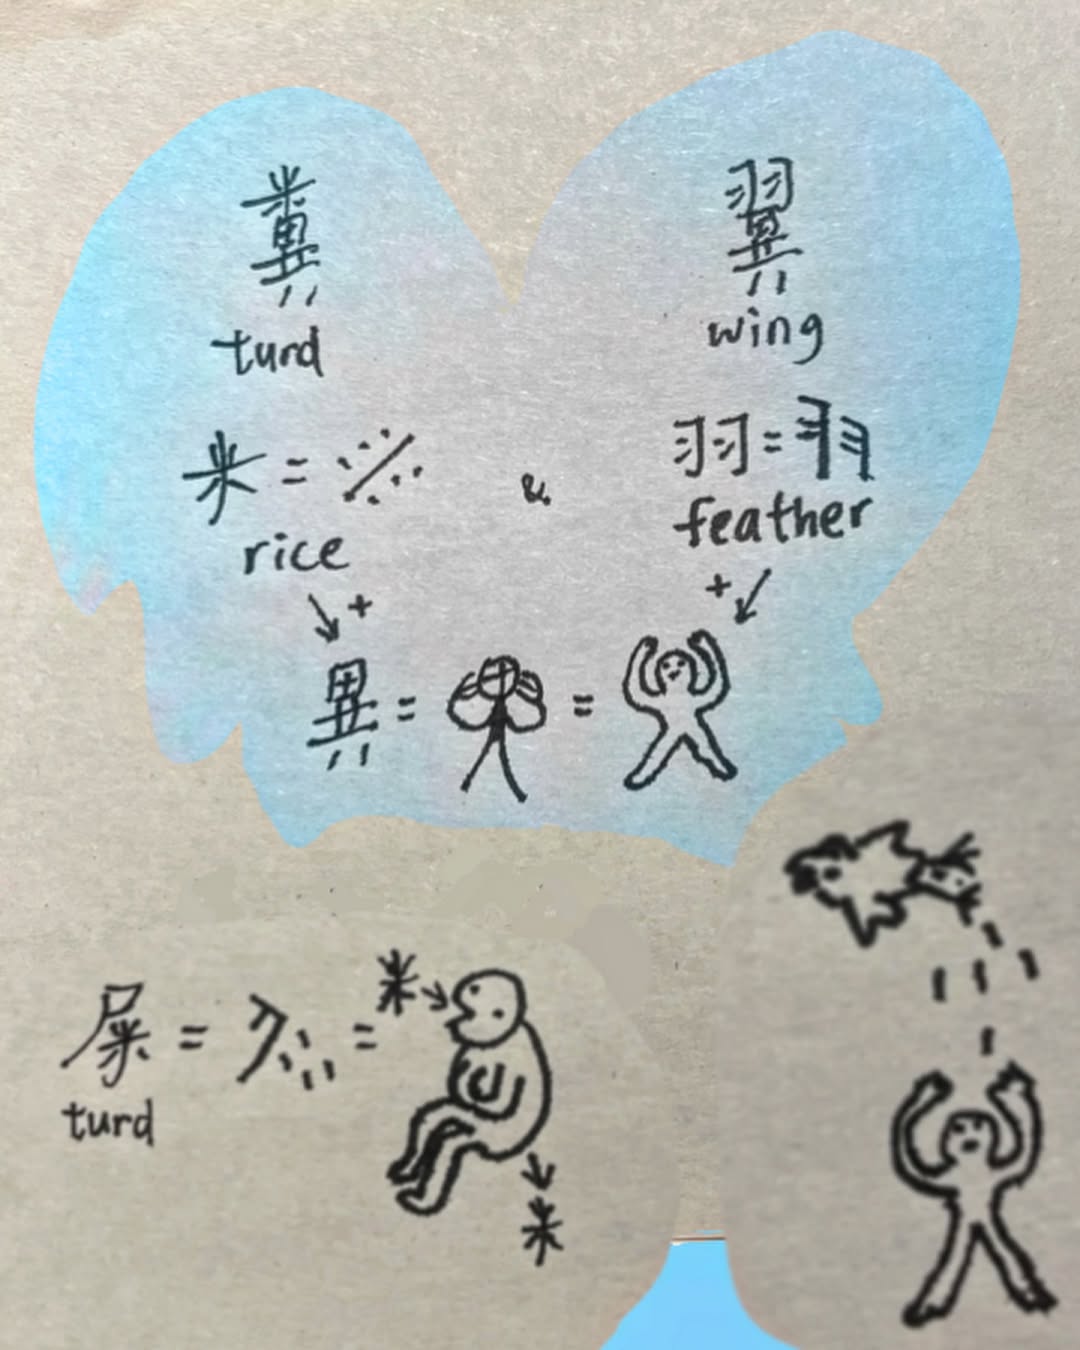 糞 翼
turd wing
米 = & 羽 =
rice feather
+ +
異 = =
屎 = = 米
turd
米